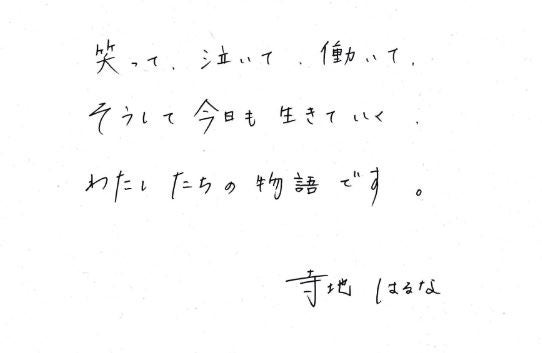 笑って、泣いて、働いて、
そうして今日も生きていく、
わたしたちの物語です。
寺地はるな